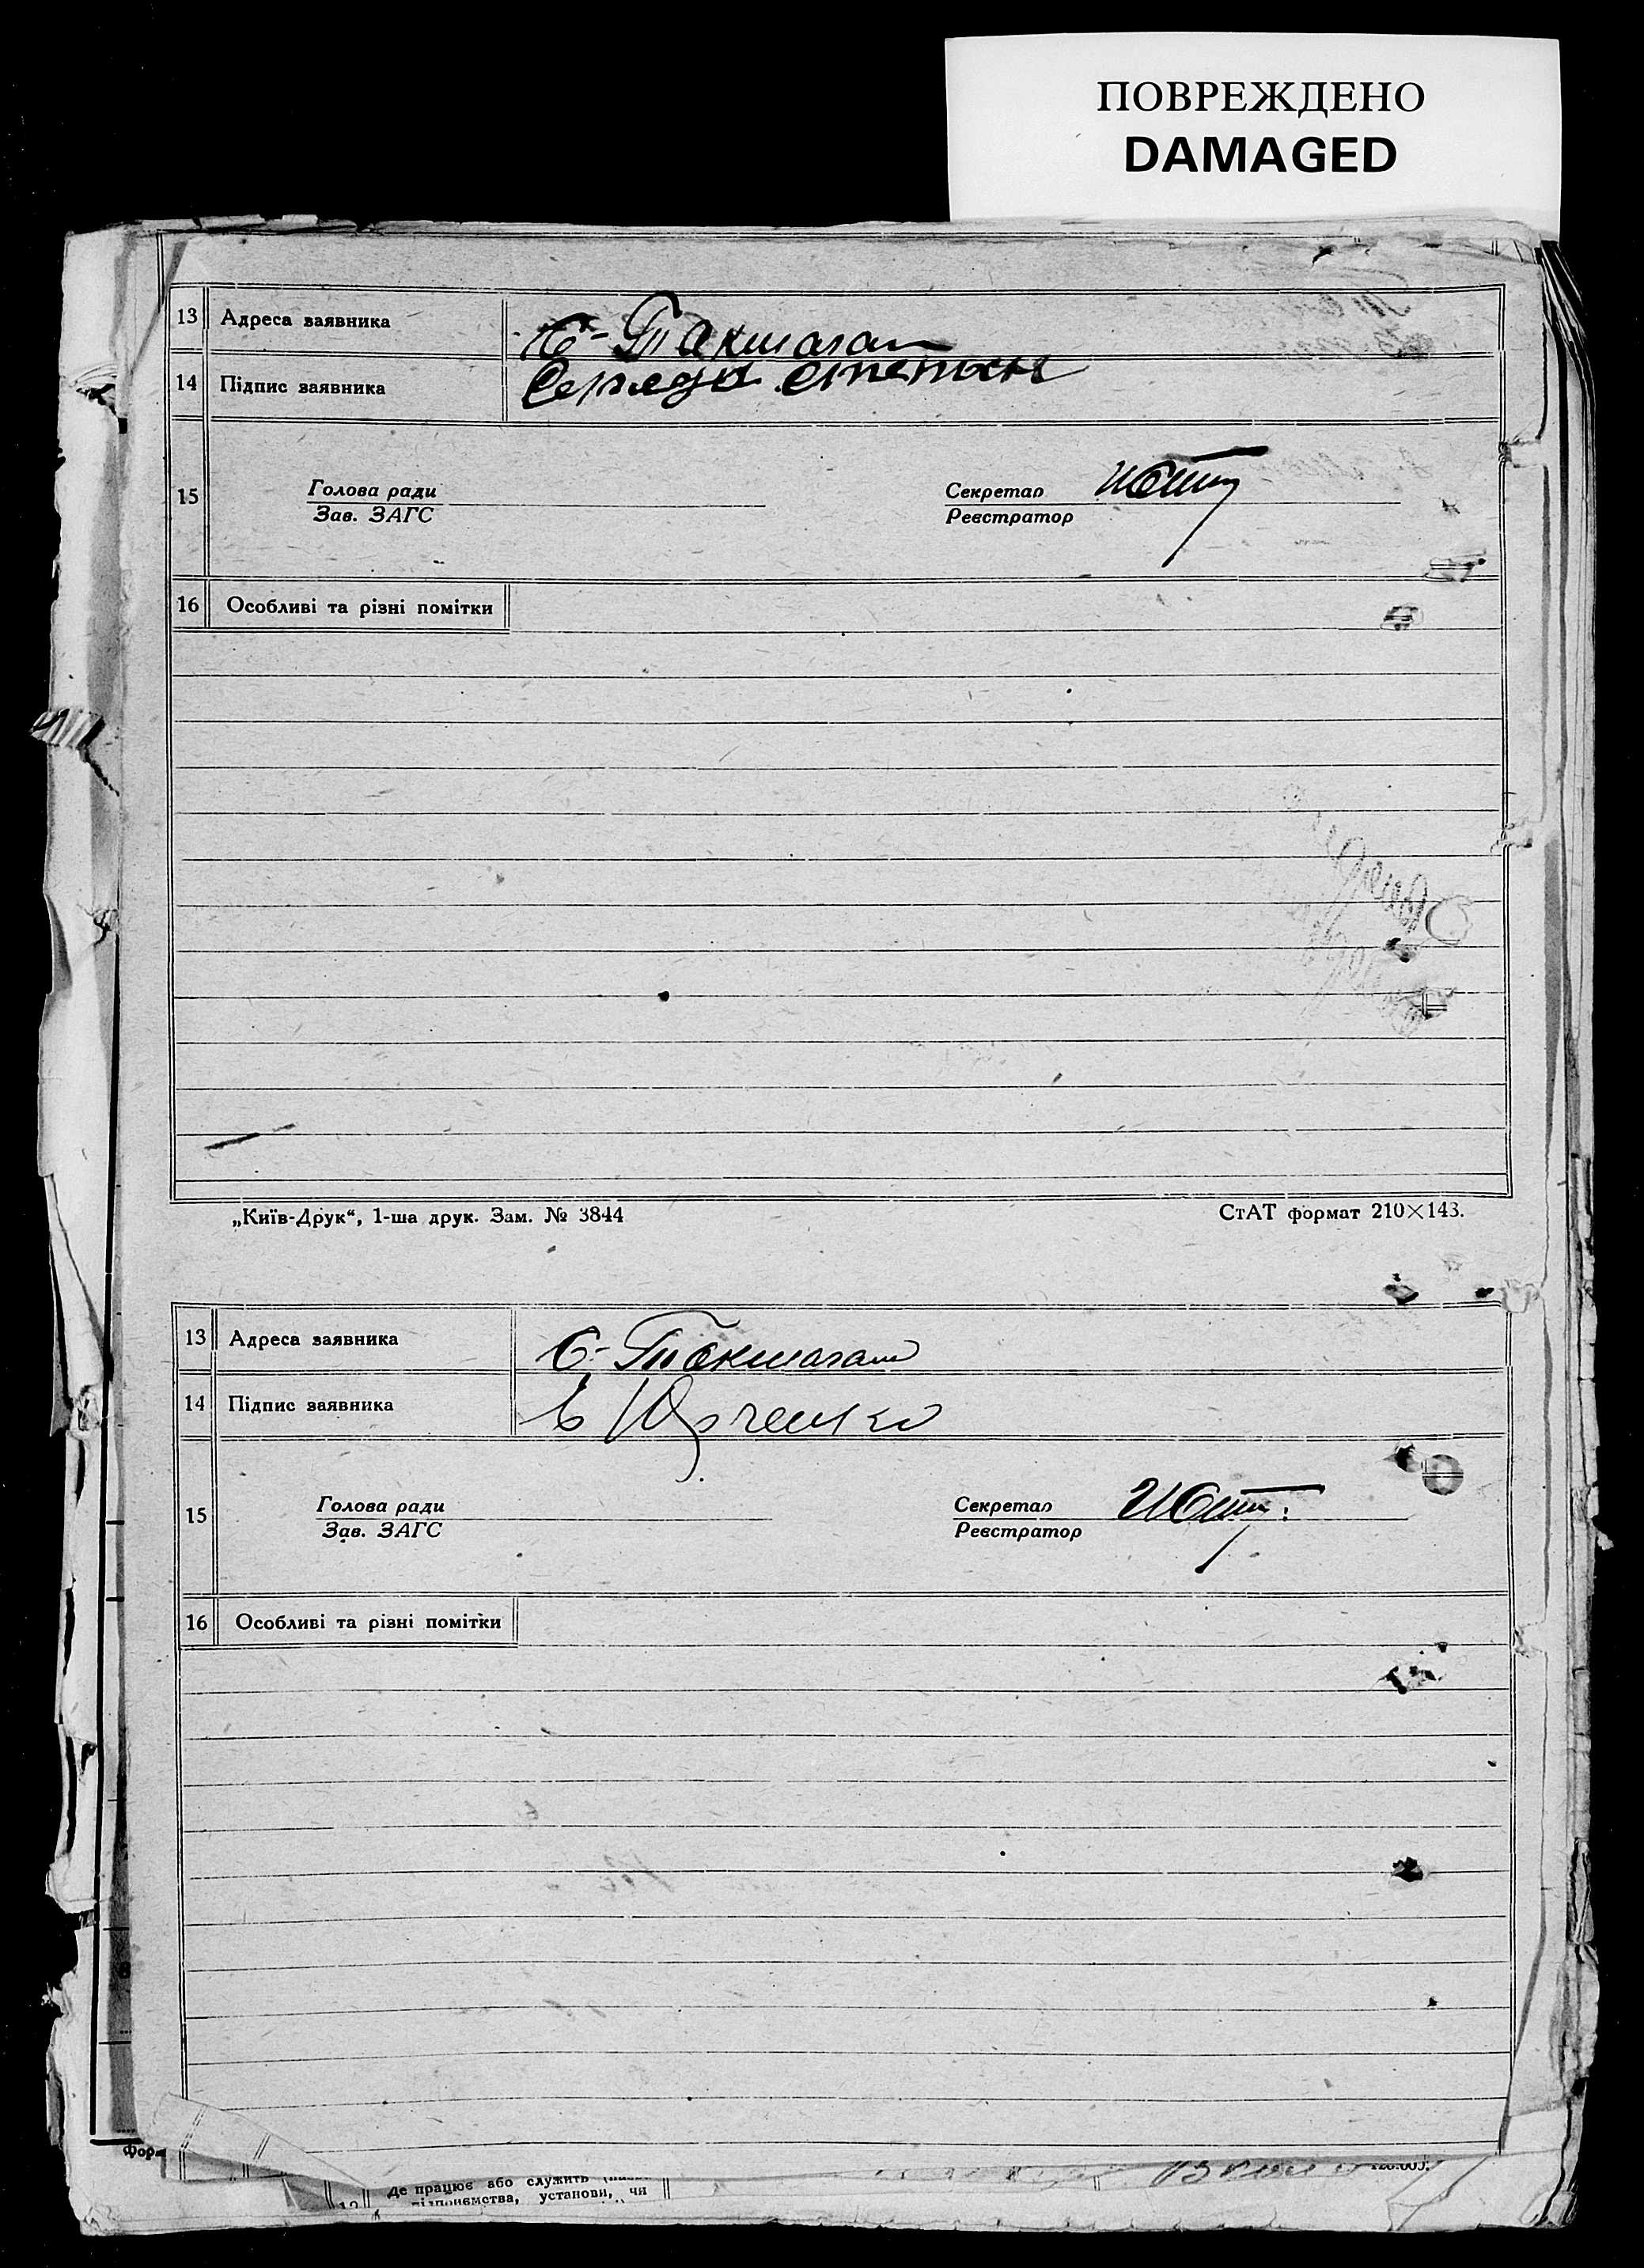 ПОВРЕЖДЕНО
DAMAGED
13 Адреса заявника С- Такмаган
14 Підпис заявника Середа Степан
Голова ради Секретар
15
Зав. ЗАГС Реєстратор
16 Особливі та різні помітки
„Київ-Друк“, 1-ша друк. Зам. № 3844 СтАТ формат 210×143.
13 Адреса заявника С- Такмаган
14 Підпис заявника Юрченко
Голова ради Секретар
15
Зав. ЗАГС Реєстратор
16 Особливі та різні помітки
Фор
де працює або служить
підприємства, установи, чи